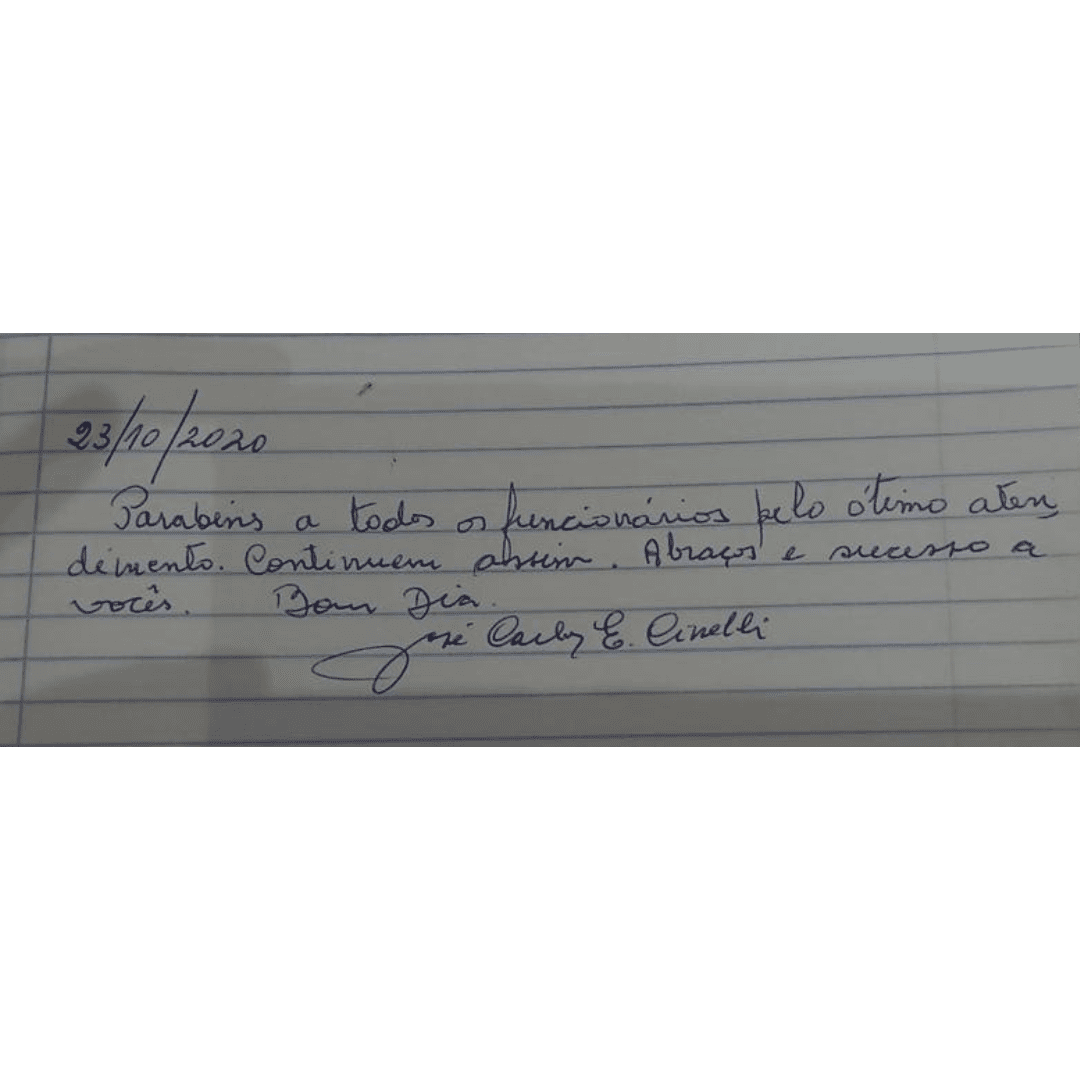 23/10/2020
Parabéns a todos os funcionários pelo ótimo aten
dimento. Continuem assim. Abraços e sucesso a
vocês. Bom Dia.
José Carlos E. Cinelli